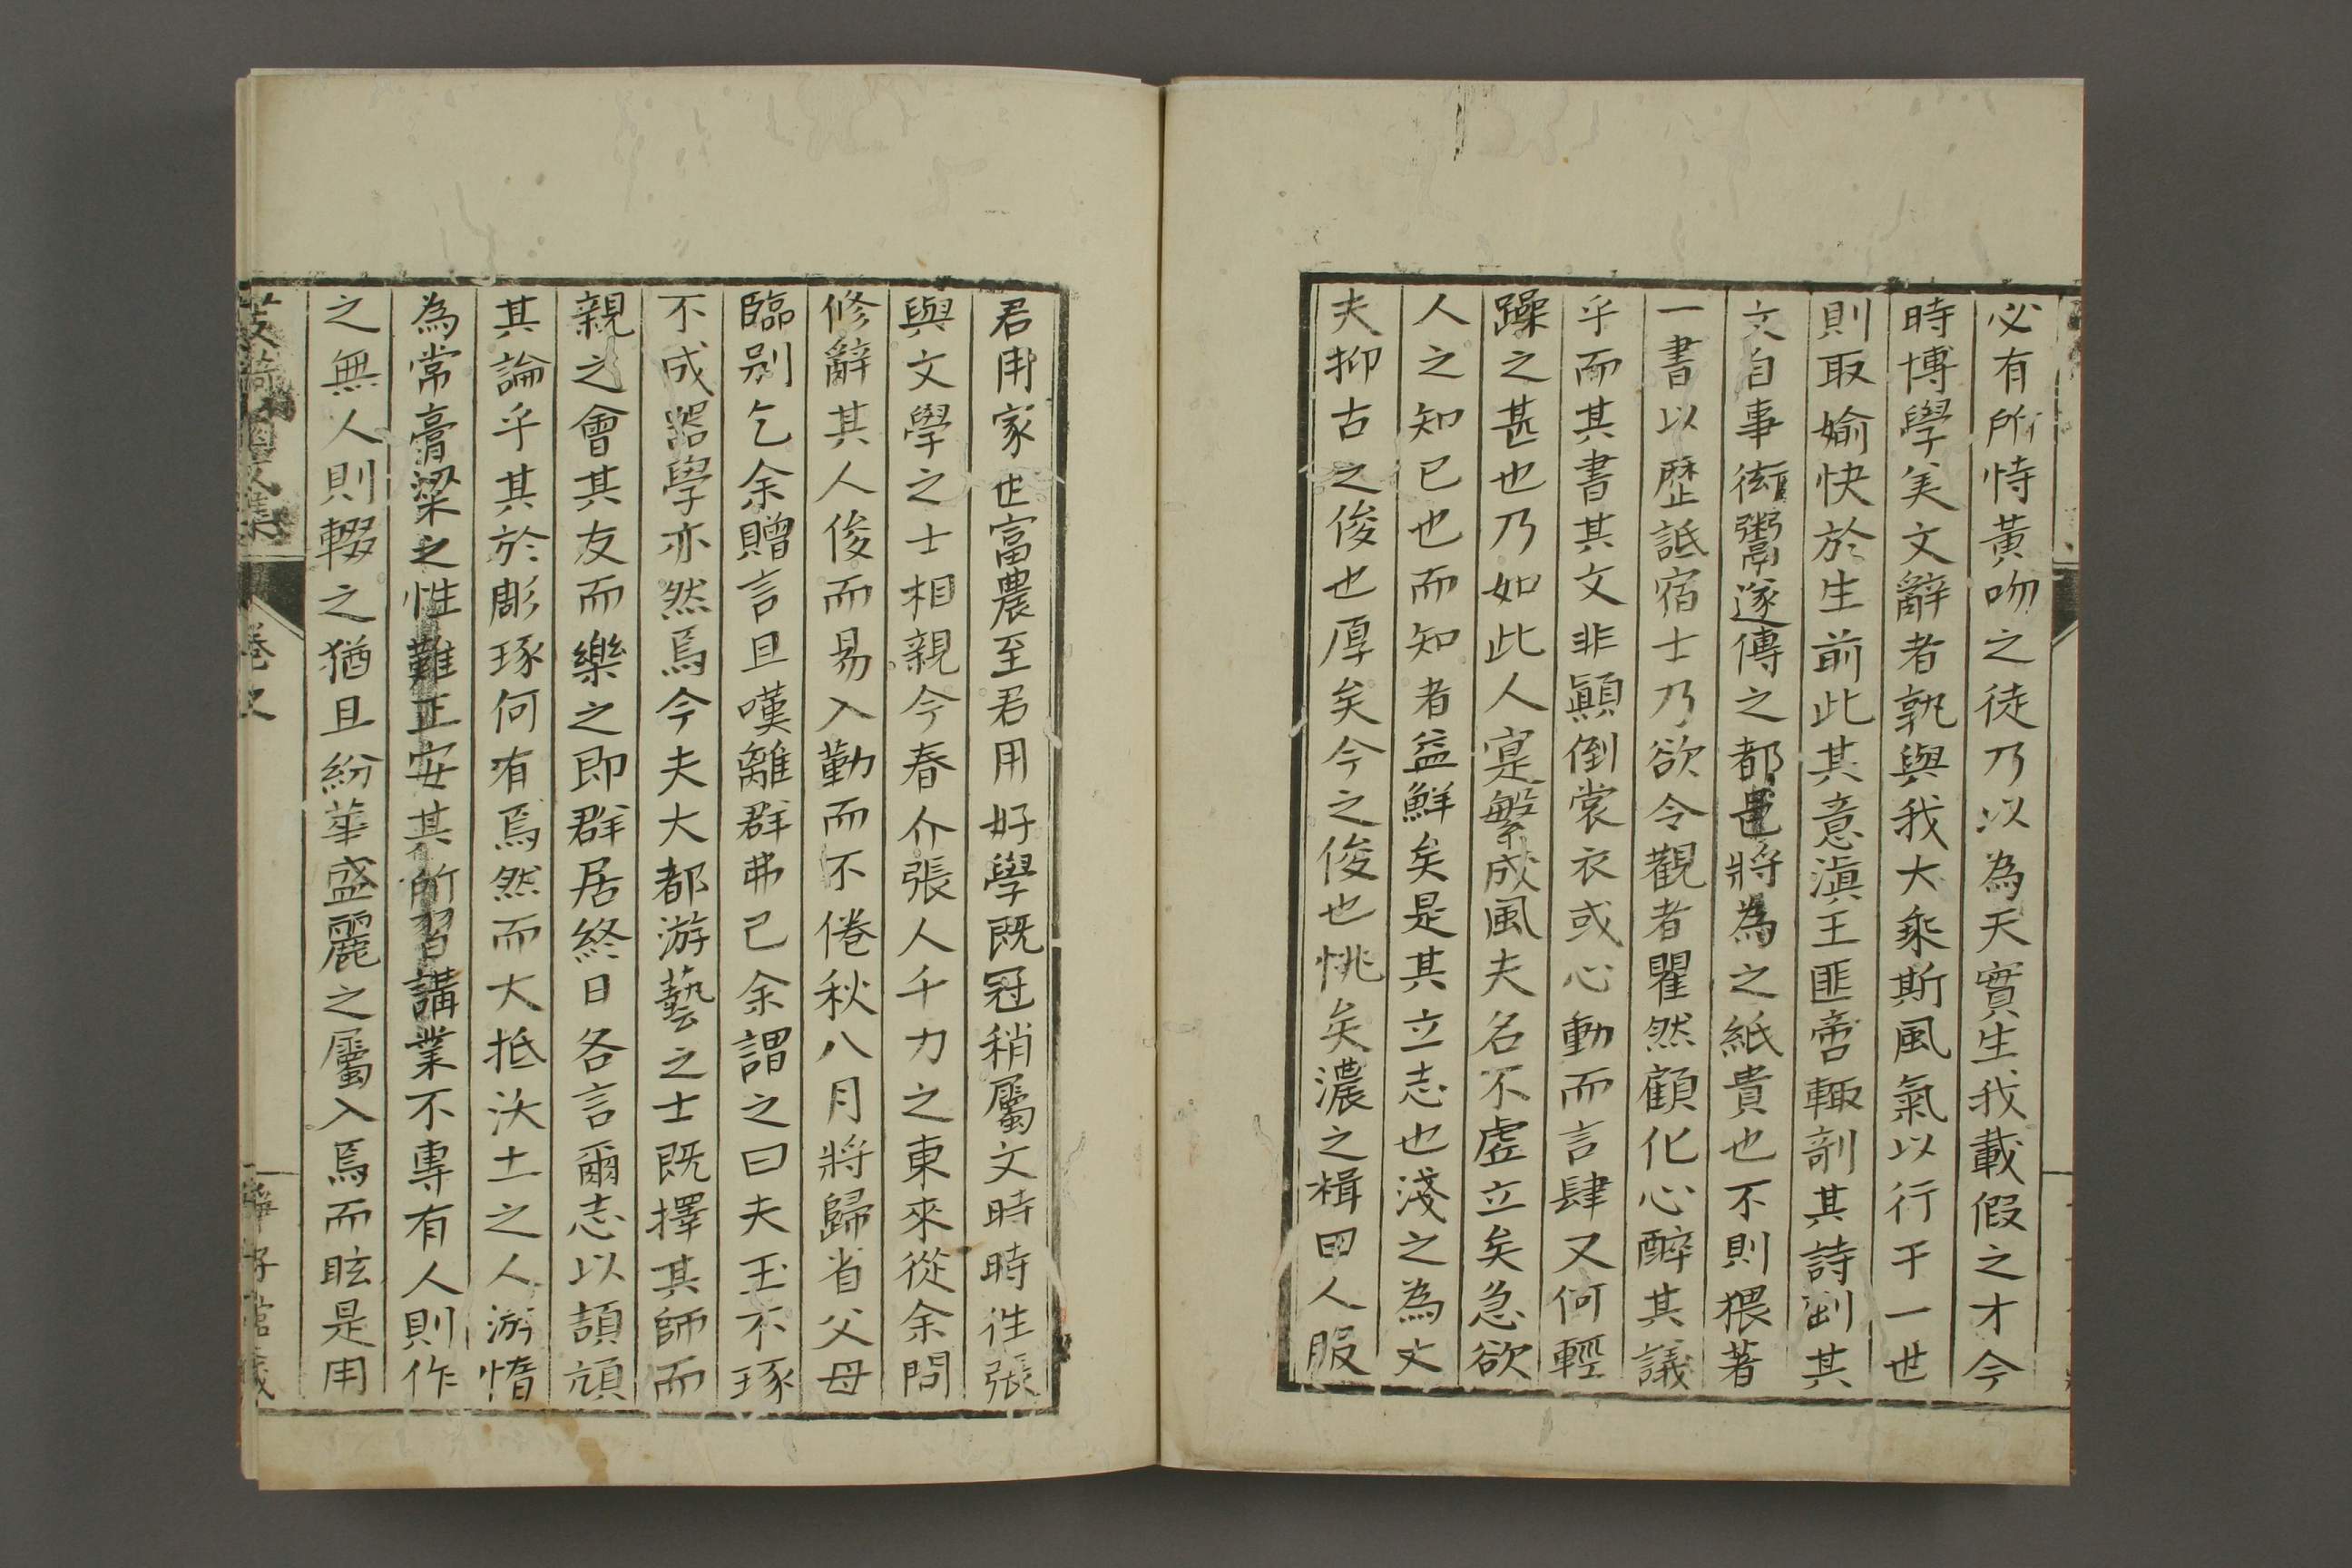 必有所恃黃吻之徒乃以為天實生我載假之才今
時博學美文辭者孰與我大乘斯風氣以行于一世
則取媮快於生前此其意滇王匪啻輙剞其詩劂其
文自事衒鬻遂傳之都邑將為之紙貴也不則猥著
一書以歷詆宿士乃欲令觀者瞿然顧化心醉其議
乎而其書其文非顚倒裳衣或心動而言肆又何輕
躁之甚也乃如此人寔繁成風夫名不虛立矣急欲
人之知已也而知者益鮮矣是其立志也淺之為丈
夫抑古之俊也厚矣今之俊也恌矣濃之楫曰人服
君用家世富農至君用好學既冠稍屬文時時徃張
與文學之士相親今春介張人千力之東來從余問
修辭其人俊而易入勤而不倦秋八月將歸省父母
臨別乞余贈言且嘆離群弗已余謂之曰夫玉不琢
不成器學亦然焉今夫大都游藝之士既擇其師而
親之會其友而樂之即群居終日各言爾志以頡頏
其論乎其於彫琢何有焉然而大抵沃土之人游惰
為常膏粱之性難正安其所習講業不專有人則作
之無人則輟之猶且紛華盛麗之屬入焉而眩是用
卷之